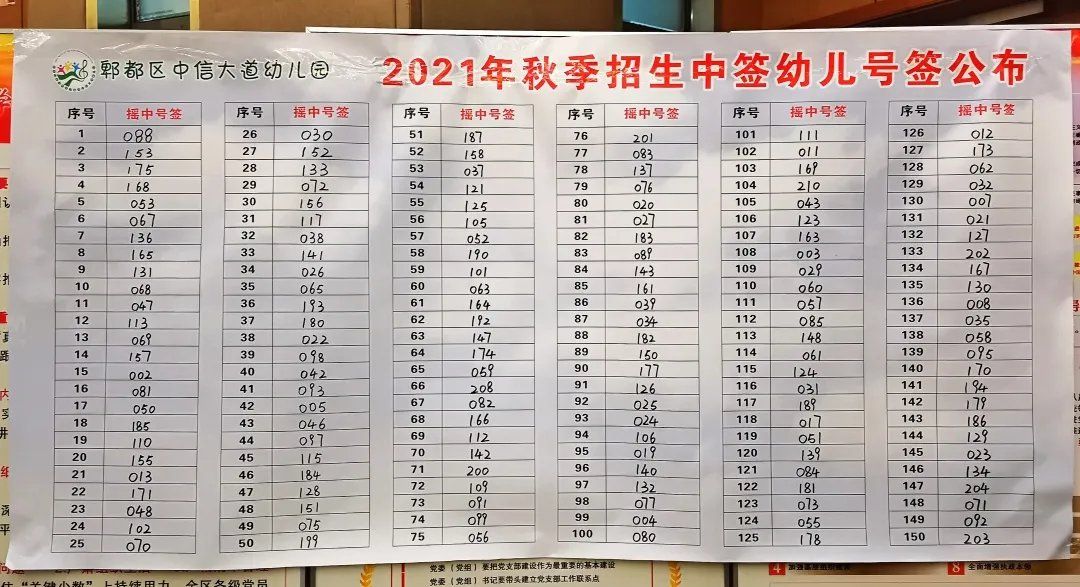 郫都区中信大道幼儿园
2021年秋季招生中签幼儿号签公布
序号 摇中号签
1 088
2 153
3 175
4 168
5 053
6 067
7 136
8 165
9 131
10 068
11 047
12 113
13 069
14 157
15 002
16 081
17 050
18 185
19 110
20 155
21 013
22 171
23 048
24 102
25 070
序号 摇中号签
26 030
27 152
28 133
29 072
30 156
31 117
32 038
33 141
34 026
35 065
36 193
37 180
38 022
39 098
40 042
41 093
42 005
43 046
44 097
45 115
46 184
47 128
48 151
49 075
50 199
序号 摇中号签
51 187
52 158
53 037
54 121
55 125
56 105
57 052
58 190
59 101
60 063
61 164
62 192
63 147
64 174
65 059
66 208
67 082
68 166
69 112
70 142
71 200
72 109
73 091
74 099
75 056
序号 摇中号签
76 201
77 083
78 137
79 076
80 020
81 027
82 183
83 089
84 143
85 161
86 039
87 034
88 182
89 150
90 177
91 126
92 025
93 024
94 106
95 019
96 140
97 132
98 077
99 004
100 080
序号 摇中号签
101 111
102 011
103 169
104 210
105 043
106 123
107 163
108 003
109 029
110 060
111 057
112 085
113 148
114 061
115 124
116 031
117 189
118 017
119 051
120 139
121 084
122 181
123 073
124 055
125 178
序号 摇中号签
126 012
127 173
128 062
129 032
130 007
131 021
132 127
133 202
134 167
135 130
136 008
137 035
138 058
139 095
140 170
141 194
142 179
143 186
144 129
145 023
146 134
147 204
148 071
149 092
150 203
党委（党组）要把党支部建设作为最重要的基本建设
党委（党组）书记要带头建立党支部工作联系点
4 加强基层组织建设
8 全面增强执政本领